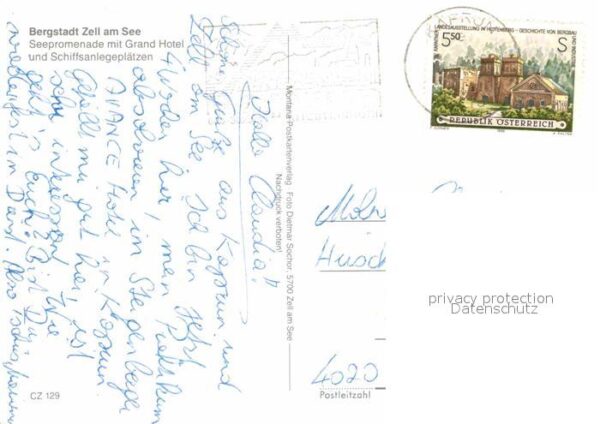 Bergstadt Zell am See
Seepromenade mit Grand Hotel
und Schiffsanlegeplätzen
Hallo Claudia!
Schöne Grüße aus Kaprun und
Zell am See. Ich bin jetzt
hier, mein Praktikum
absolvieren im Steigenberger
AVANCE Hotel in Kaprun
Gefällt mir gut hier, ist
sehr interessant. Wie
geht's Euch? Bist Du
Montania-Postkartenverlag Foto Dietmar Sochor, 5700 Zell am See
Nachdruck verboten!
CZ 129
KAPRUN
LANDESAUSSTELLUNG IN HÜTTENBERG - GESCHICHTE VON BERGBAU
5.50
S
REPUBLIK ÖSTERREICH
4020
Postleitzahl
privacy protection
Datenschutz